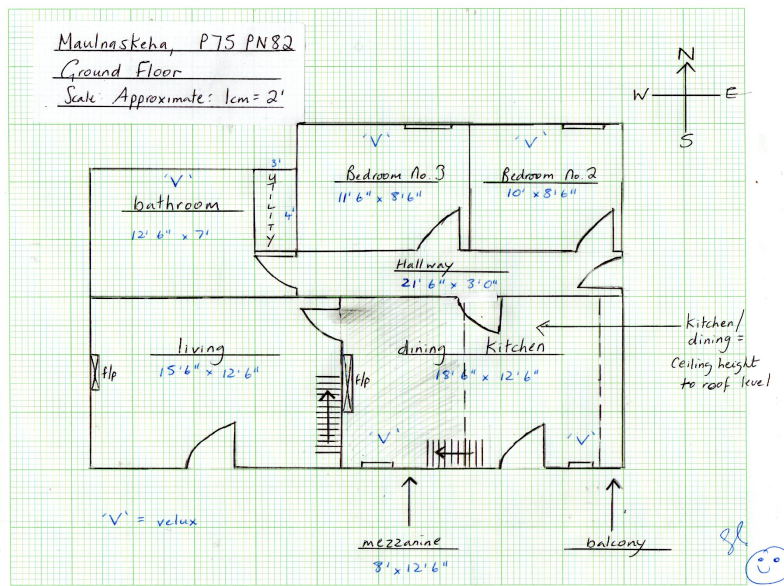 Maulnaskeha, P75 PN82
Ground Floor
Scale: Approximate: 1cm = 2'
N
W E
S
'V'
'V'
3'
'V'
Bedroom No. 3
11' 6" x 8' 6"
Bedroom No. 2
10' x 8' 6"
UTILITY
4'
bathroom
12' 6" x 7'
Hallway
21' 6" x 3' 0"
living
15' 6" x 12' 6"
f/p
f/p
dining kitchen
18' 6" x 12' 6"
kitchen/
dining =
ceiling height
to roof level
'V'
'V'
'V' = velux
mezzanine
8' x 12' 6"
balcony